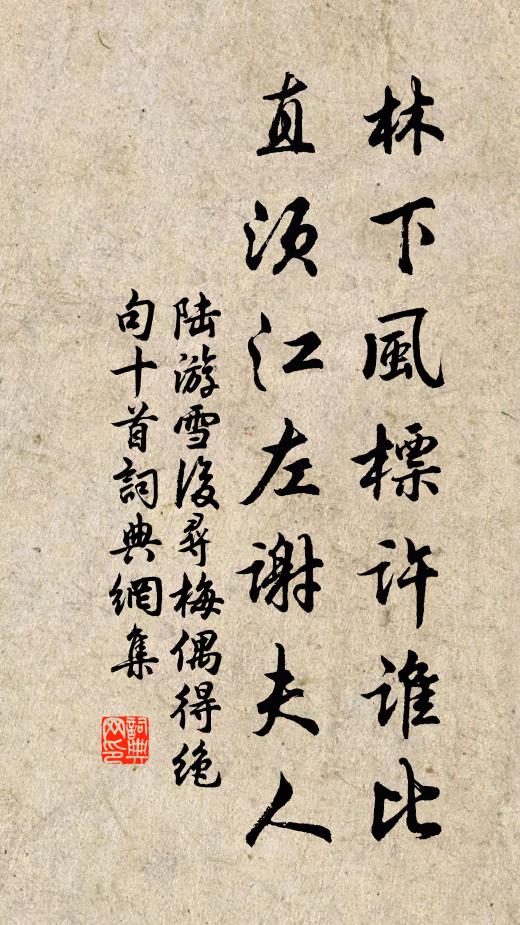 林下風標許誰比
直須江左謝夫人
陸游雪後尋梅偶得絕
句十首詞典網集
詞典
网印